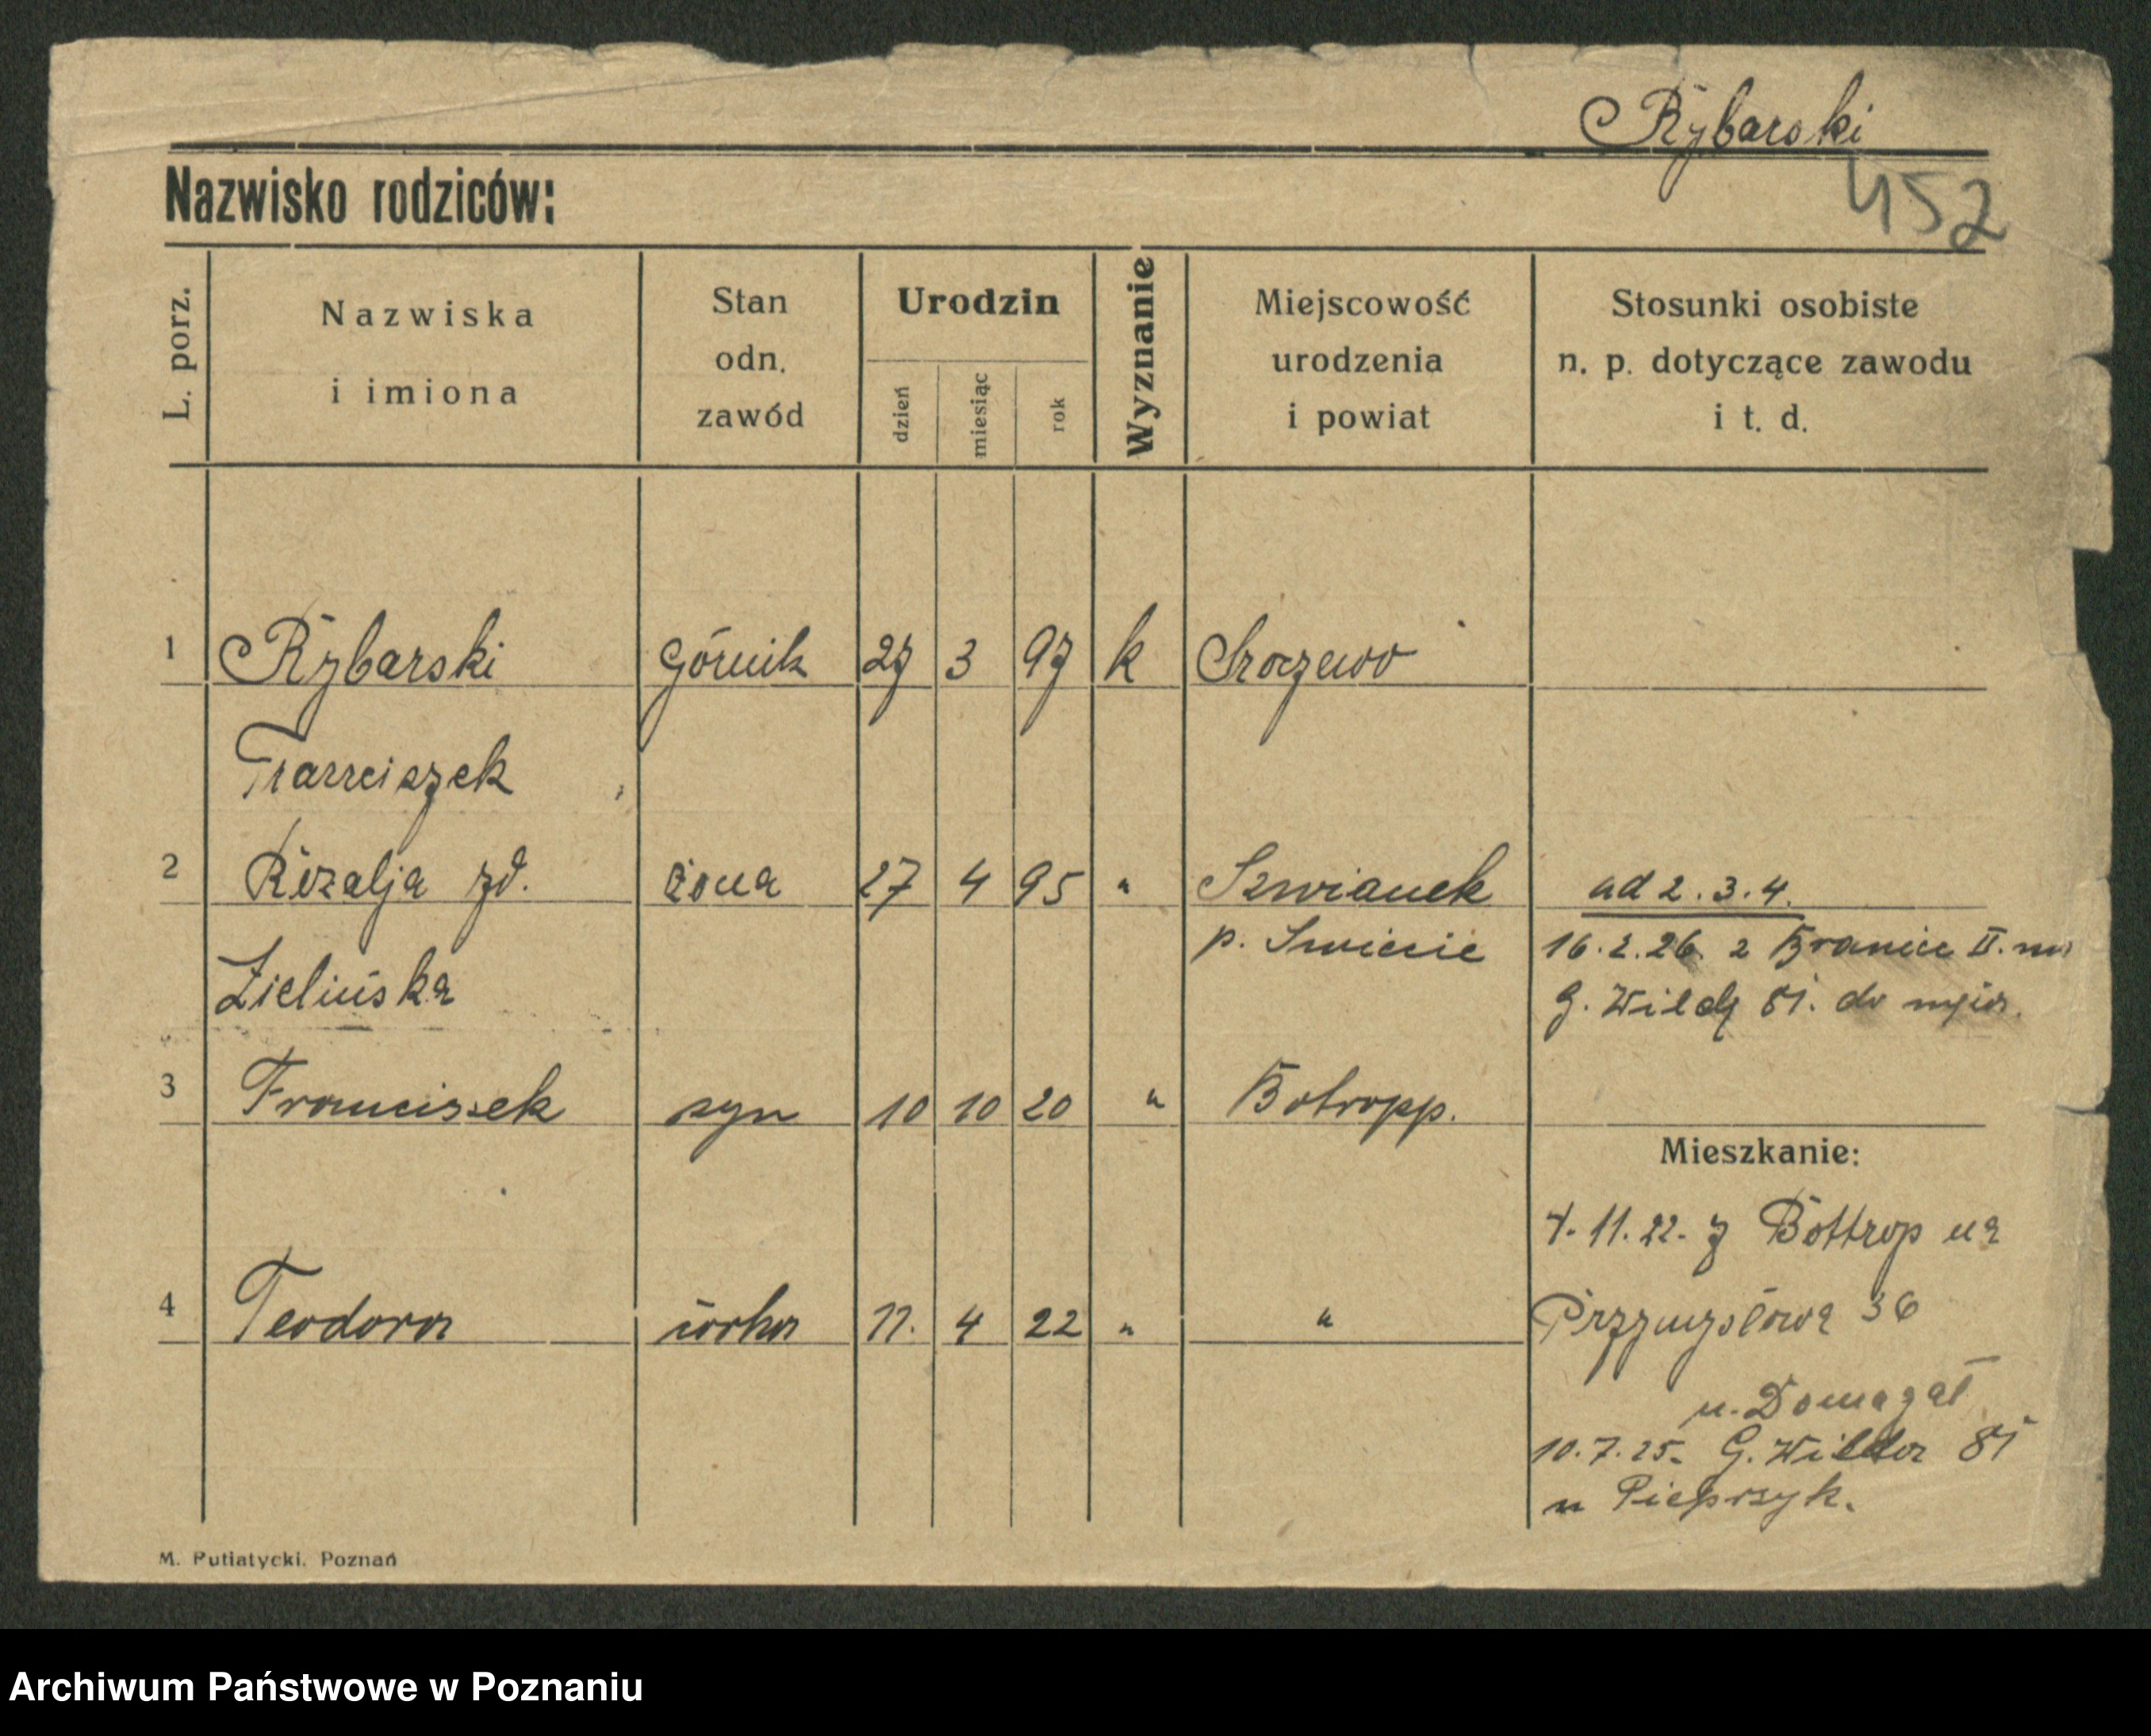 Rybarski
452
Nazwisko rodziców:
L. porz.
Nazwiska
i imiona
Stan
odn.
zawód
Urodzin
dzień
miesiąc
rok
Wyznanie
Miejscowość
urodzenia
i powiat
Stosunki osobiste
n. p. dotyczące zawodu
i t. d.
1 Rybarski górnik 27 3 97 k
Franciszek
2 Rozalja zd. żona 27 4 95 " ad 2. 3. 4.
p. Swiecie 16. 2. 26. z II.
Zielińska G. Wildy 81. do
3 Franciszek syn 10 10 20 " Botropp.
Mieszkanie:
4. 11. 22. z Bottrop na
4 Teodora córka 11. 4 22 " " Przemysłowa 36
u. Domagał
10. 7. 25. G. Wilda 81
u Pieprzyk.
M. Putiatycki. Poznań
Archiwum Państwowe w Poznaniu